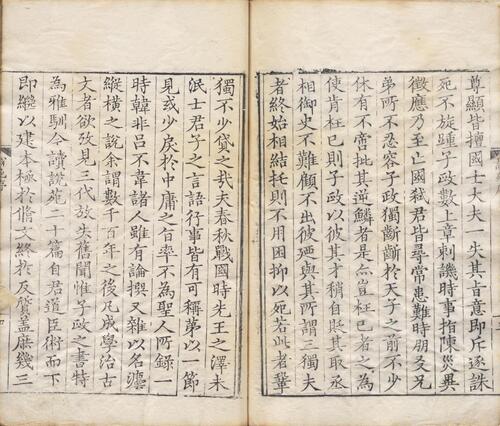 尊顯皆擅國士大夫一失其肯意即斥逐誅
死不旋踵子政數上章刺譏時事指陳災異
徵應乃至亡國弒君皆尋常患難時朋友兄
弟所不忍容子政獨齗齗於天子之前不少
休有不啻批其逆鱗者是亦豈枉已者之為
使肯枉已則子政以彼其才稍自貶其取丞
相御史不難顧不出彼廼與其所謂三獨夫
者終始相結托則不用困抑以死若此者鞏
獨不少貸之哉夫春秋戰國時先王之澤未
泯士君子之言語行事皆有可稱弟以一節
見或少戾於中庸之旨率不為聖人所錄一
時韓非呂不韋諸人雖有論撰又雜以名灋
縱橫之說余謂數千百年之後凡成學治古
文者欲攷見三代放失舊聞惟子政之書特
為雅馴今讀說苑二十篇自君道臣術而下
即繼以建本極於脩文終於反質蓋庶幾三